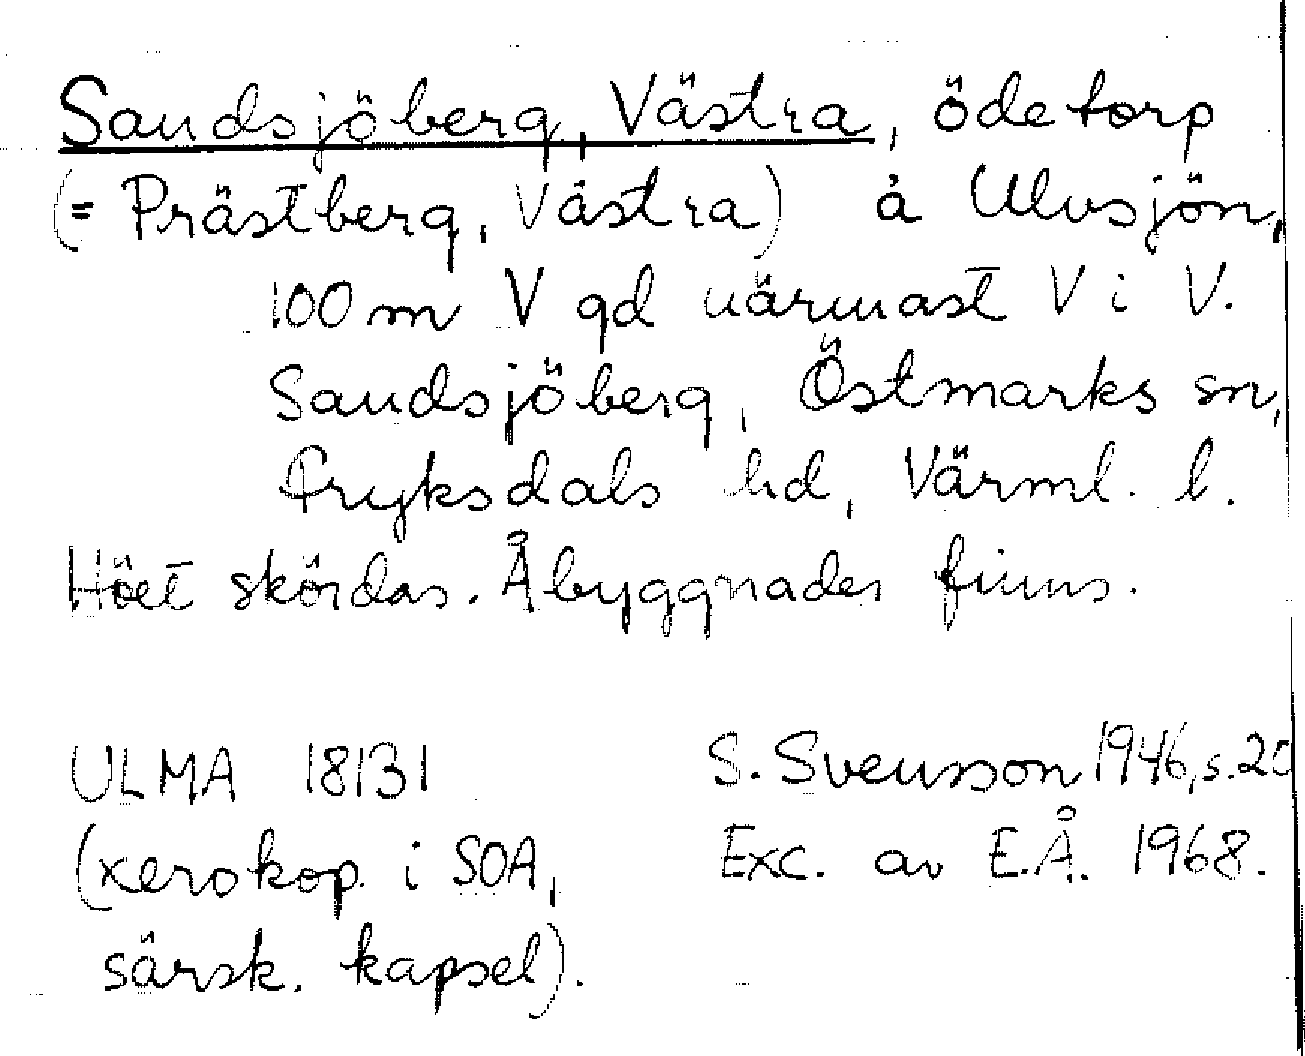 Sandsjöberg, Västra, ödetorp
(= Prästberg, Västra) å Ulvsjön,
100 m V gd närmast V i V.
Sandsjöberg, Östmarks sn,
Fryksdals hd, Värml. l.
Höet skördas. Åbyggnader finns.
ULMA 18131 S. Svensson 1946, s. 20
(xerokop. i SOA, Exc. av E.Å. 1968.
särsk. kapsel).